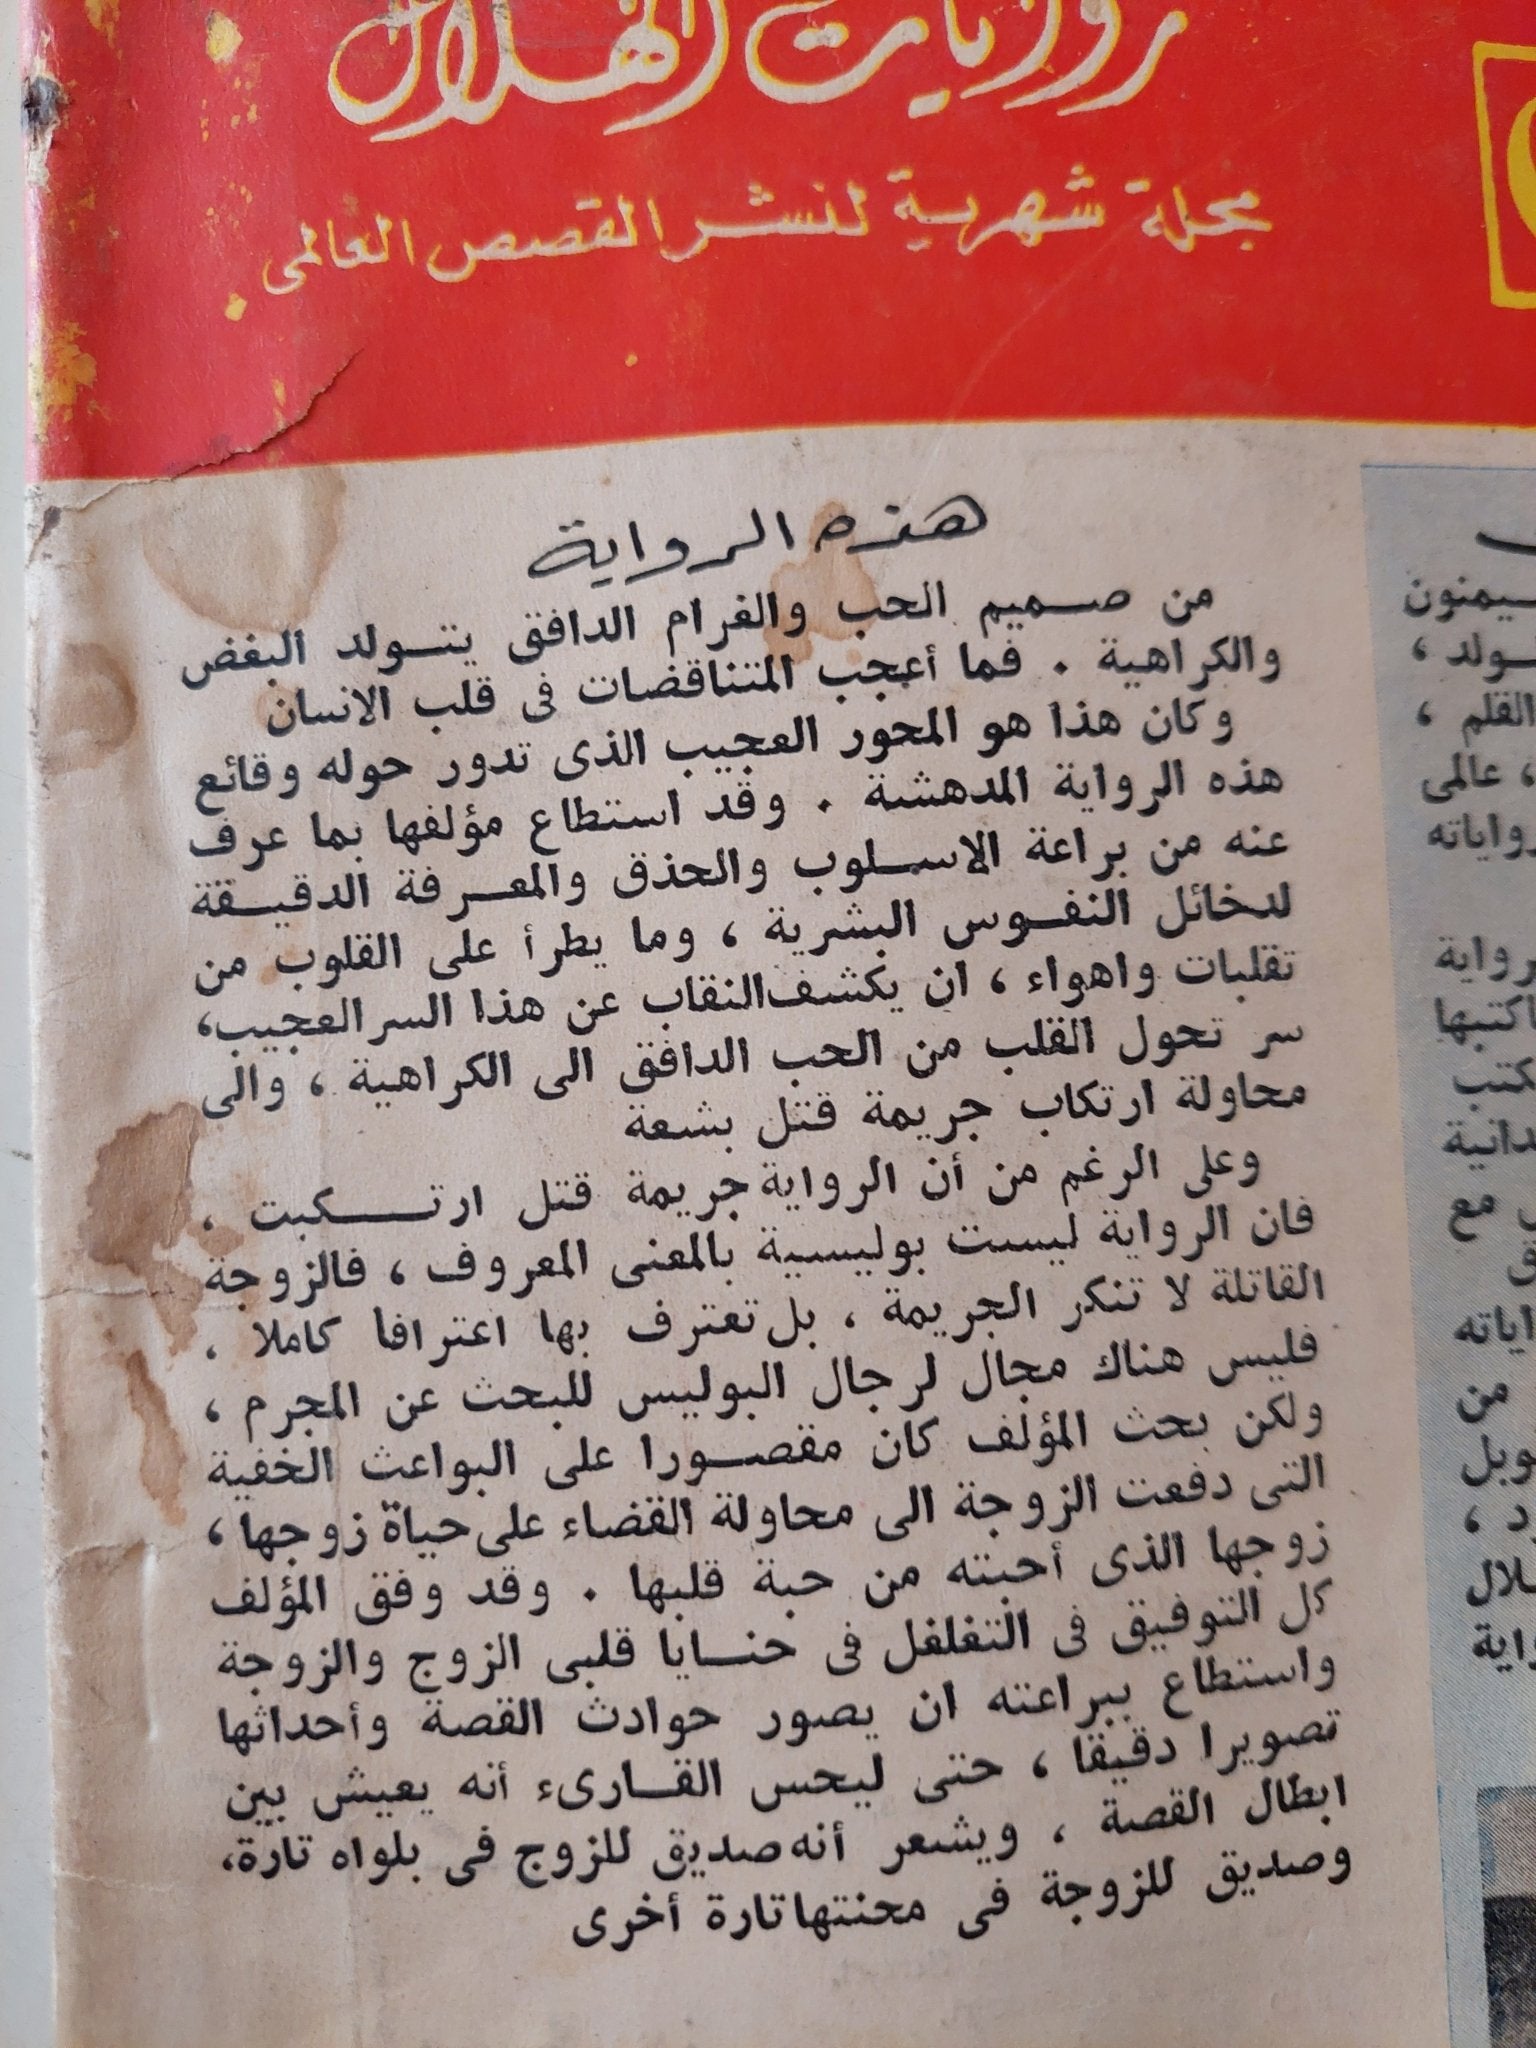 روايات الهلال
مجلة شهرية لنشر القصص العالمى
هذه الرواية
من صميم الحب والغرام الدافق يتولد البغض
والكراهية . فما أعجب المتناقضات فى قلب الانسان
وكان هذا هو المحور العجيب الذى تدور حوله وقائع
هذه الرواية المدهشة . وقد استطاع مؤلفها بما عرف
عنه من براعة الاسلوب والحذق والمعرفة الدقيقة
لدخائل النفوس البشرية ، وما يطرأ على القلوب من
تقلبات واهواء ، ان يكشف النقاب عن هذا السر العجيب ،
سر تحول القلب من الحب الدافق الى الكراهية ، والى
محاولة ارتكاب جريمة قتل بشعة
وعلى الرغم من أن الرواية جريمة قتل ارتكبت ،
فان الرواية ليست بوليسية بالمعنى المعروف ، فالزوجة
القاتلة لا تنكر الجريمة ، بل تعترف بها اعترافا كاملا ،
فليس هناك مجال لرجال البوليس للبحث عن المجرم ،
ولكن بحث المؤلف كان مقصورا على البواعث الخفية
التى دفعت الزوجة الى محاولة القضاء على حياة زوجها ،
زوجها الذى أحبته من حبة قلبها . وقد وفق المؤلف
كل التوفيق فى التغلغل فى حنايا قلبى الزوج والزوجة
واستطاع ببراعته ان يصور حوادث القصة وأحداثها
تصويرا دقيقا ، حتى ليحس القارىء أنه يعيش بين
ابطال القصة ، ويشعر أنه صديق للزوج فى بلواه تارة ،
وصديق للزوجة فى محنتها تارة أخرى
القلم ،
، عالمى
رواياته
مع
من